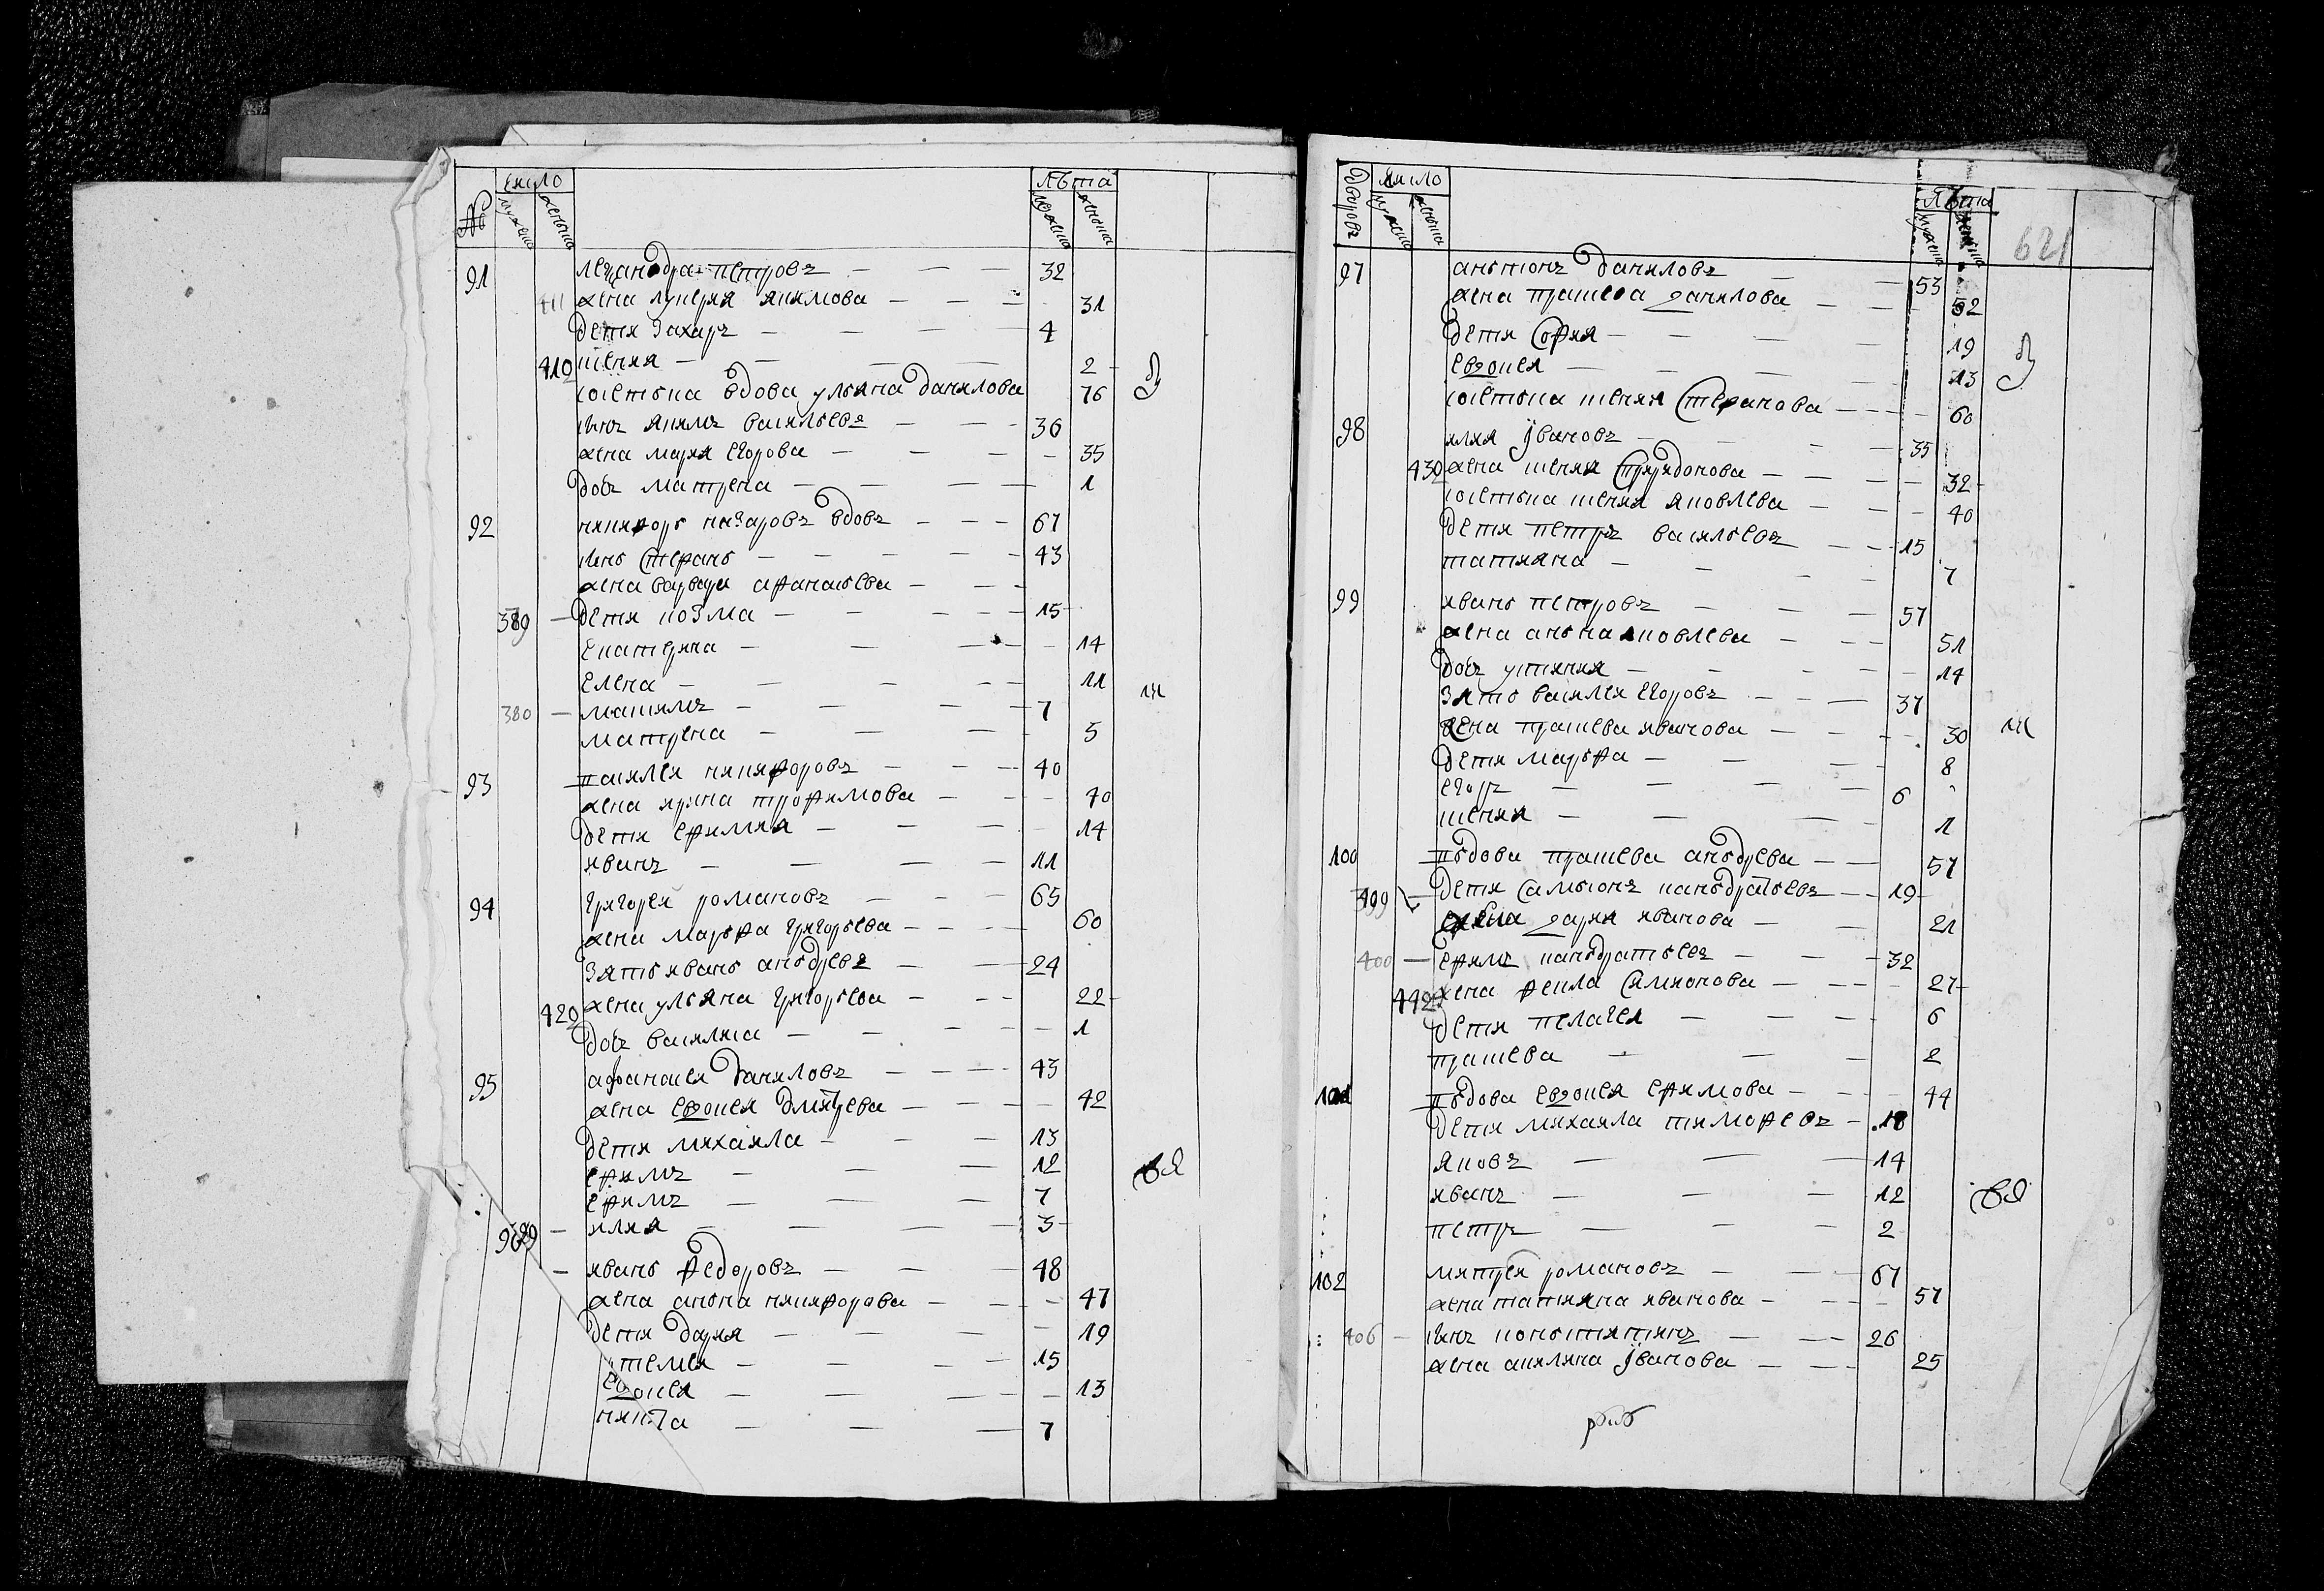 № число лѣта
мужеска женска мужеска женска
91 леѯанодра петровъ — — — 32
411 жена лукерия якимова — — — 31
дети Захаръ — — — 4
412 ксения — — — 2
юсестьна вдова ульяна данилова 76
сынъ якимъ васильевъ — — 36
жена мария егорова — — — 35
дочь матрена — — — 1
92 никифоръ назаровъ вдовъ — — — 67
сынъ стефанъ — — — 43
жена варвара афанасьева — — —
389 — дети козма — — — 15
екатерина — — — 14
елена — — — 11
380 — максимъ — — — 7
матрена — — — 5
93 василеи никифоровъ — — — 40
жена ирина трофимова — — — 40
дети ефимия — — — 14
иванъ — — — 11
94 григореи романовъ — — — 65
жена марфа григорьева — — — 60
Зять иванъ андреевъ — — 24
жена ульяна григорьева — — — 22
429 дочь василиса — — — 1
95 афонасеи даниловъ — — — 43
жена евдокея дмитрева — — — 42
дети михаила — — — 13
ефимъ — — — 12
ефимъ — — — 7
— илия — — — 3
96 — иванъ федоровъ — — — 48
жена анна никифорова — — — 47
дети дария — — — 19
ртемеи — — — 15
евдокея — — — 13
никита — — — 7
дворовъ число лѣта
мужеска женска мужеска женска
621
97 антонъ даниловъ — 53
жена прасева данилова — — 52
дети София — — — 19
евдокея — — — 13
юсестьна ксения Стефанова — — — 60
98 илия Ивановъ — — — 35
432 жена ксения Спиридонова — — — 32
юсестьна ксения яковлева — — — 40
дети петръ васильевъ — — 15
татияна — — — 7
99 иванъ петровъ — — — 57
жена анна яковлева — — — 51
дочь устиния — — — 14
Зять василеи егоровъ — — — 37
жена прасева иванова — — — 30
дети марфа — — — 8
егоръ — — — 6
ксения — — — 1
100 вдова прасева андрева — — 57
399 — дети Самсонъ кандратьевъ — — 19
жена дария иванова — — 21
400 — ефимъ кандратьевъ — — — 32
442 жена фекла Симионова — — — 27
дети пелагея — — — 6
прасева — — — 2
101 вдова евдокея ефимова — — — 44
дети михаила тимофеевъ — 18
яковъ — — — 14
иванъ — — — 12
петръ — — — 2
102 митреи романовъ — — — 67
жена татияна иванова — — — 57
406 — сынъ константинъ — — — 26
жена акилина Іванова — — — 25